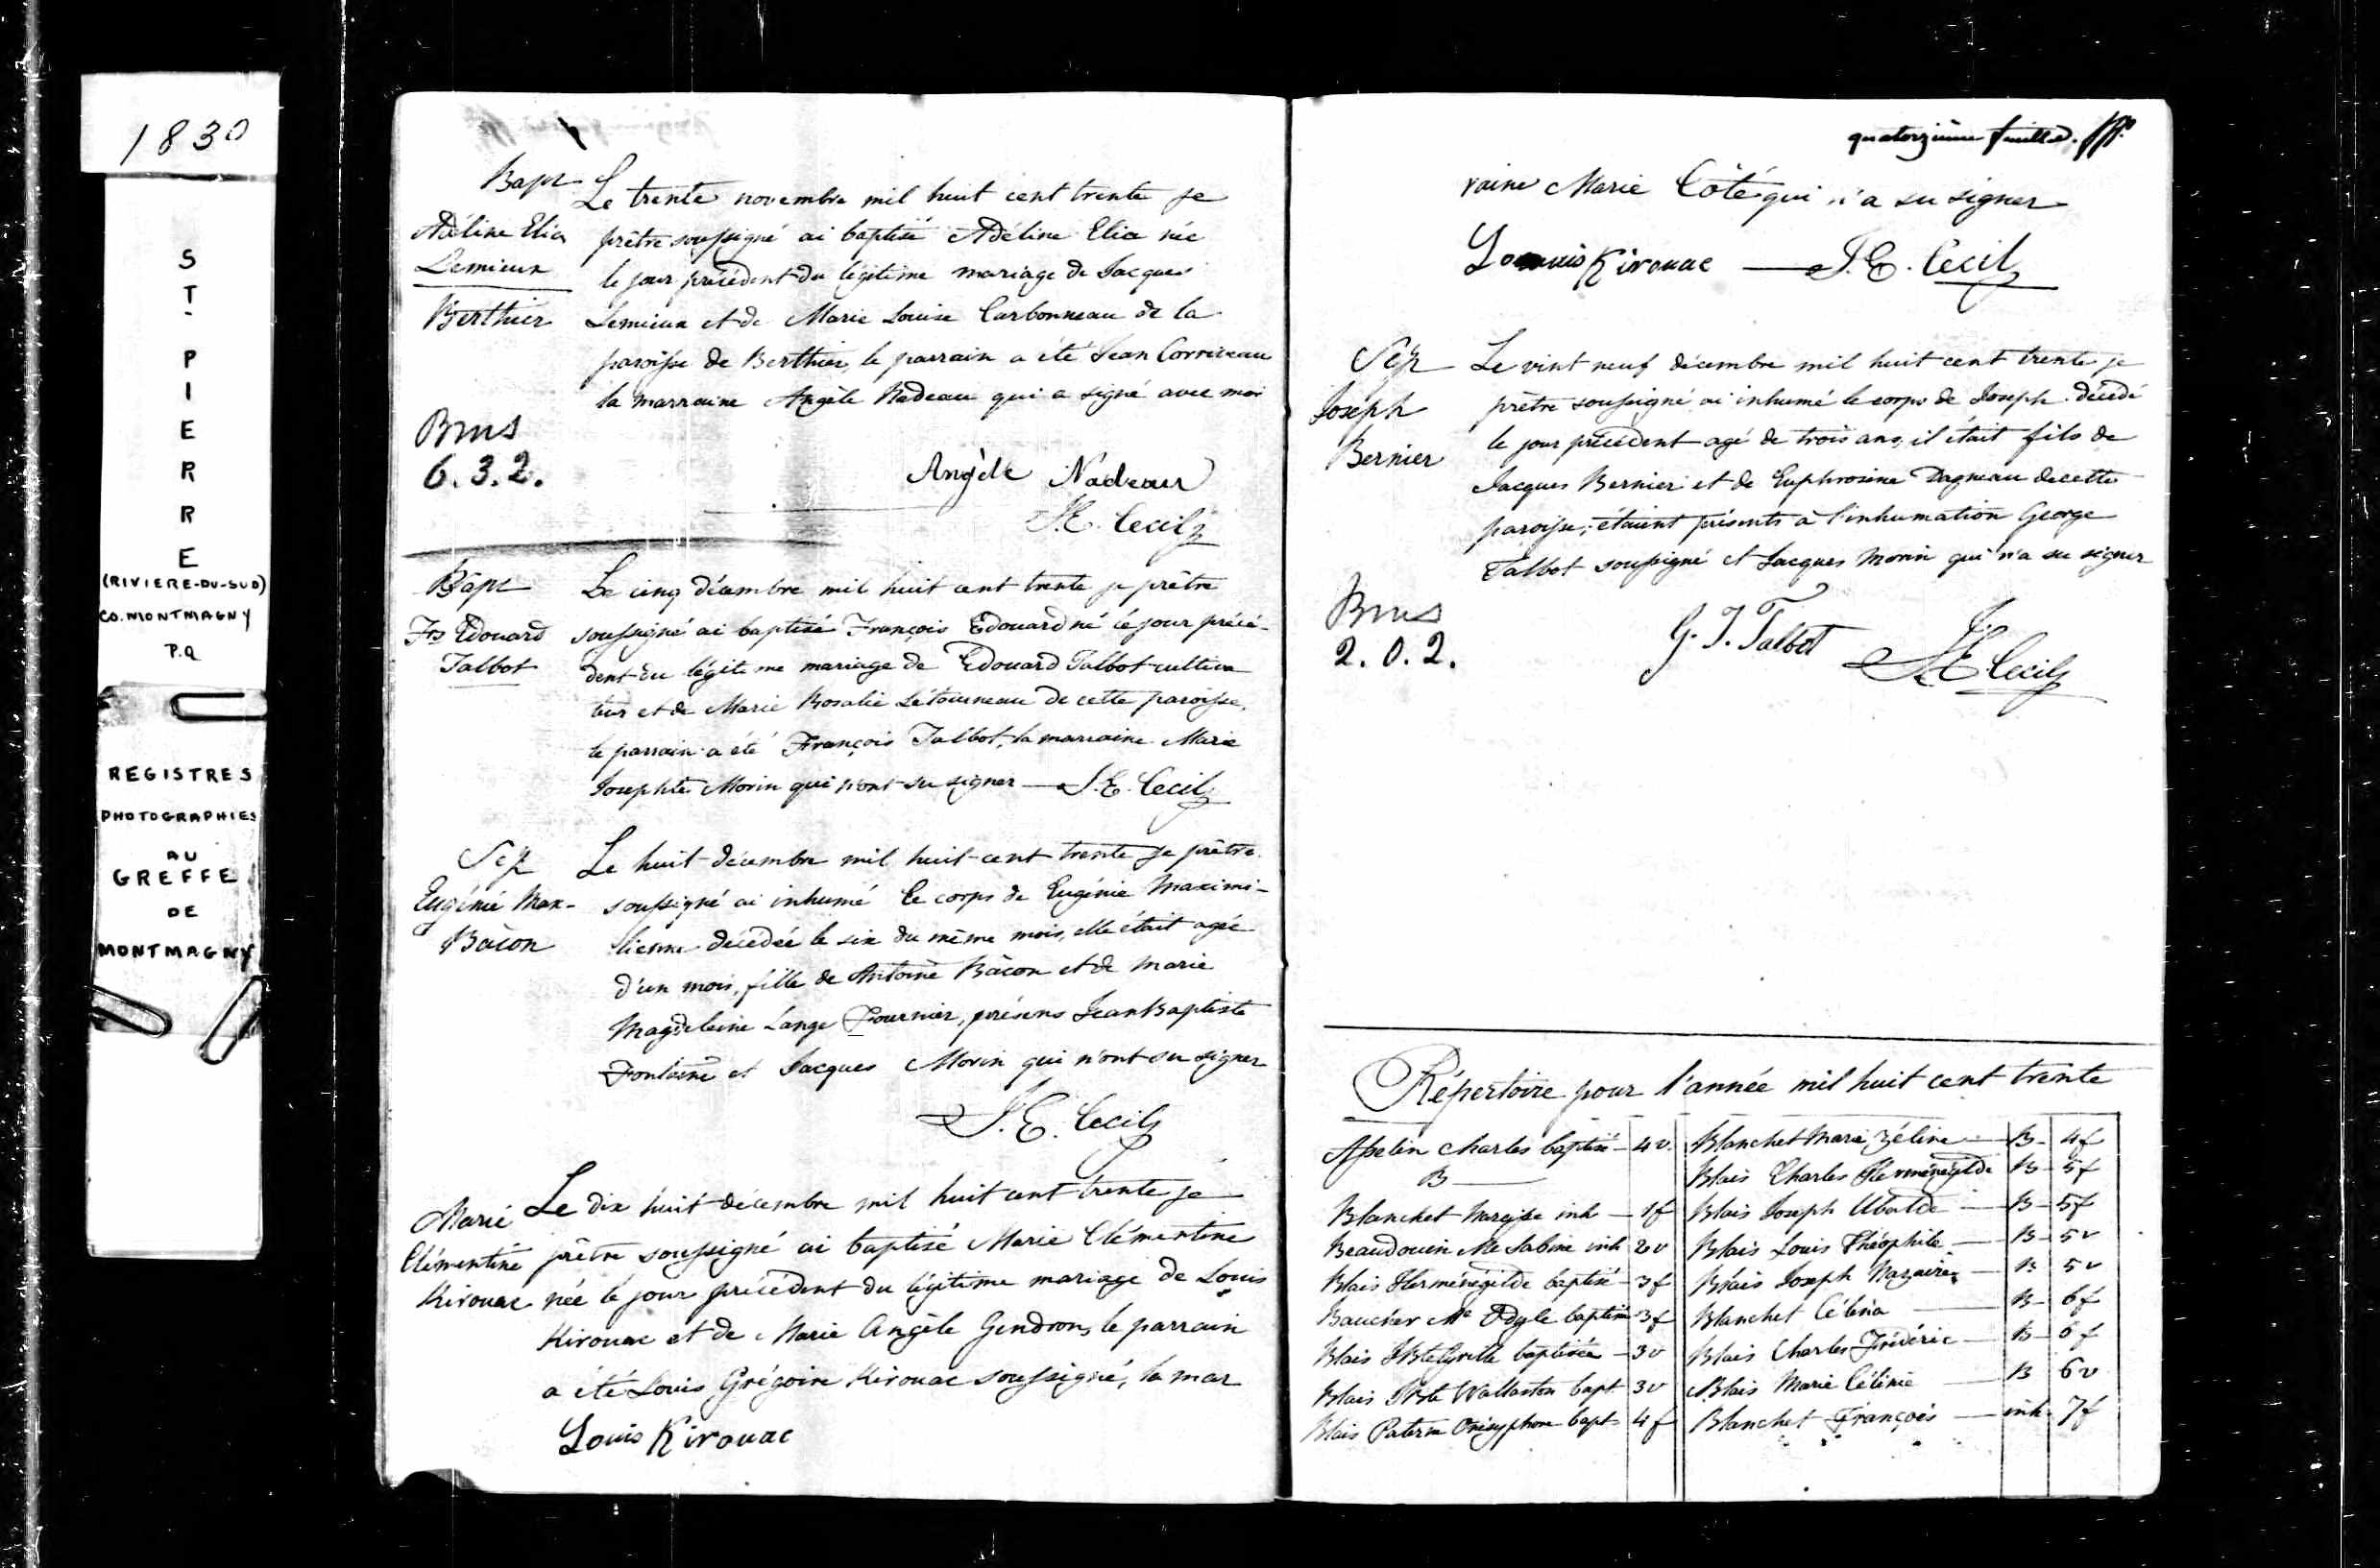 1830
S
T.
P
I
E
R
R
E
(RIVIERE-DU-SUD)
CO. MONTMAGNY
P.Q
REGISTRES
PHOTOGRAPHIES
AU
GREFFE
DE
MONTMAGNY
Bapt
Adéline Elia
Lemieux
Berthier
Le trente novembre mil huit cent trente je
prêtre soussigné ai baptisé Adéline Elia née
le jour précédent du légitime mariage de Jacques
Lemieux et de Marie Louise Carbonneau de la
paroisse de Berthier, le parrain a été Jean Corriveau
la marraine Angèle Nadeau qui a signé avec moi
Bms
6.3.2.
Angèle Nadeau
J.E. Cecil
Bapt
Frs Edouard
Talbot
Le cinq décembre mil huit cent trente je prêtre
soussigné ai baptisé François Edouard né le jour précé-
dent du légitime mariage de Edouard Talbot cultiva
teur et de Marie Rosalie Létourneau de cette paroisse,
le parrain a été François Talbot, la marraine Marie
Josephte Morin qui n'ont su signer — J.E. Cecil
Sep
Eugénie Max-
Bâcon
Le huit décembre mil huit cent trente je prêtre
soussigné ai inhumé le corps de Eugénie Maximi-
lienne décédée le six du même mois, elle était agée
d'un mois, fille de Antoine Bâcon et de Marie
Magdeleine Lange Fournier, présens Jean Baptiste
Fontaine et Jacques Morin qui n'ont su signer
J.E. Cecil
Marie
Clémentine
Kirouac
Le dix huit décembre mil huit cent trente je
prêtre soussigné ai baptisé Marie Clémentine
née le jour précédent du légitime mariage de Louis
Kirouac et de Marie Angèle Gendron, le parrain
a été Louis Grégoire Kirouac soussigné, la mar
Louis Kirouac
quatorzième feuillet.
raine Marie Côté qui n'a su signer
Louis Kirouac — J.E. Cecil
Sep
Joseph
Bernier
Le vint neuf décembre mil huit cent trente je
prêtre soussigné ai inhumé le corps de Joseph décédé
le jour précédent agé de trois ans, il était fils de
Jacques Bernier et de Euphrosine Dagneau de cette
paroisse; étaient présents à l'inhumation George
Talbot soussigné et Jacques Morin qui n'a su signer
Bms
2.0.2.
G. J. Talbot J.E. Cecil
Répertoire pour l'année mil huit cent trente
Asselin Charles baptisé — 4v.
B —
Blanchet Narcisse inh — 1f
Beaudouin Me Sabine inh 2v
Blais Herménégilde baptisé — 3f
Baucher Me Odyle baptisée 3f
Blais JBte Cyrille baptisée — 3v
Blais JBte Wallaston bapt. 3v
Blais Paterne Onésyphore bapt 4f
Blanchet Marie Zéline — B — 4f
Blais Charles Herménégilde B — 5f
Blais Joseph Ubalde — B — 5f
Blais Louis Théophile — B — 5v
Blais Joseph Nazaire — B 5v
Blanchet Célina — B — 6f
Blais Charles Frédéric — B — 6f
Blais Marie Célinie — B 6v
Blanchet François — inh. 7f